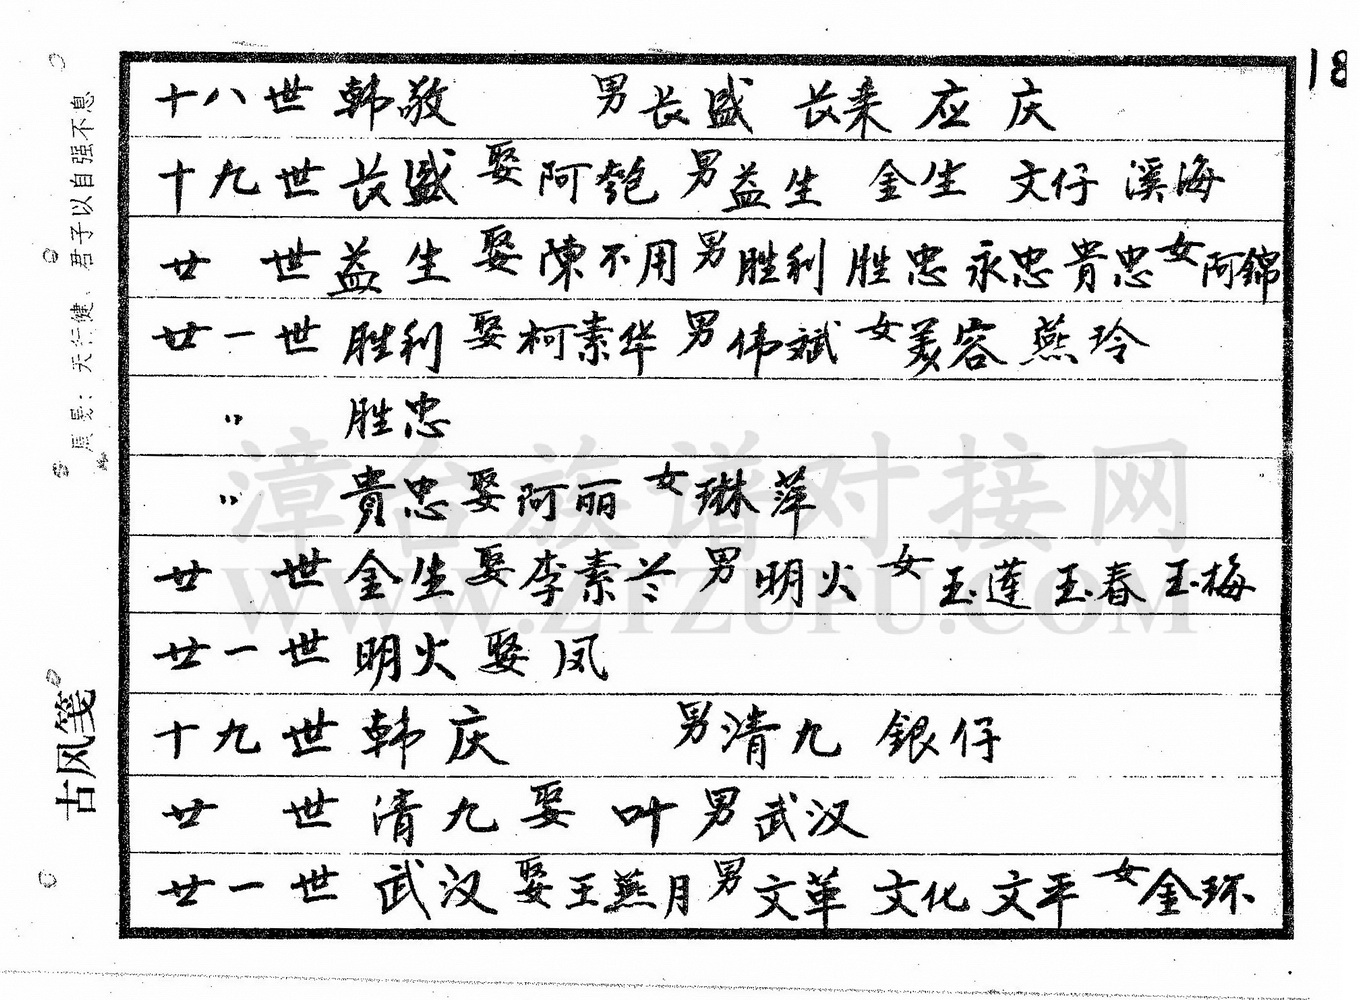 18
十八世韩敬 男长盛 长来 应 庆
十九世长盛 娶阿匏 男益生 金生 文仔 溪海
廿 世益生 娶陳不用 男胜利 胜忠 永忠 貴忠 女阿錦
廿一世 胜利 娶柯素华 男伟斌 女美容 燕玲
〃 胜忠
〃 貴忠 娶阿丽 女琳萍
廿 世金生 娶李素兰 男明火 女玉莲 玉春 玉梅
廿一世 明火 娶凤
十九世韩庆 男清九 銀仔
廿 世 清九 娶 叶 男武汉
廿一世 武汉 娶王燕月 男文革 文化 文平 女金环
周易：天行健、君子以自强不息
古风笺
漳台族谱对接网
WWW.ZTZUPU.COM